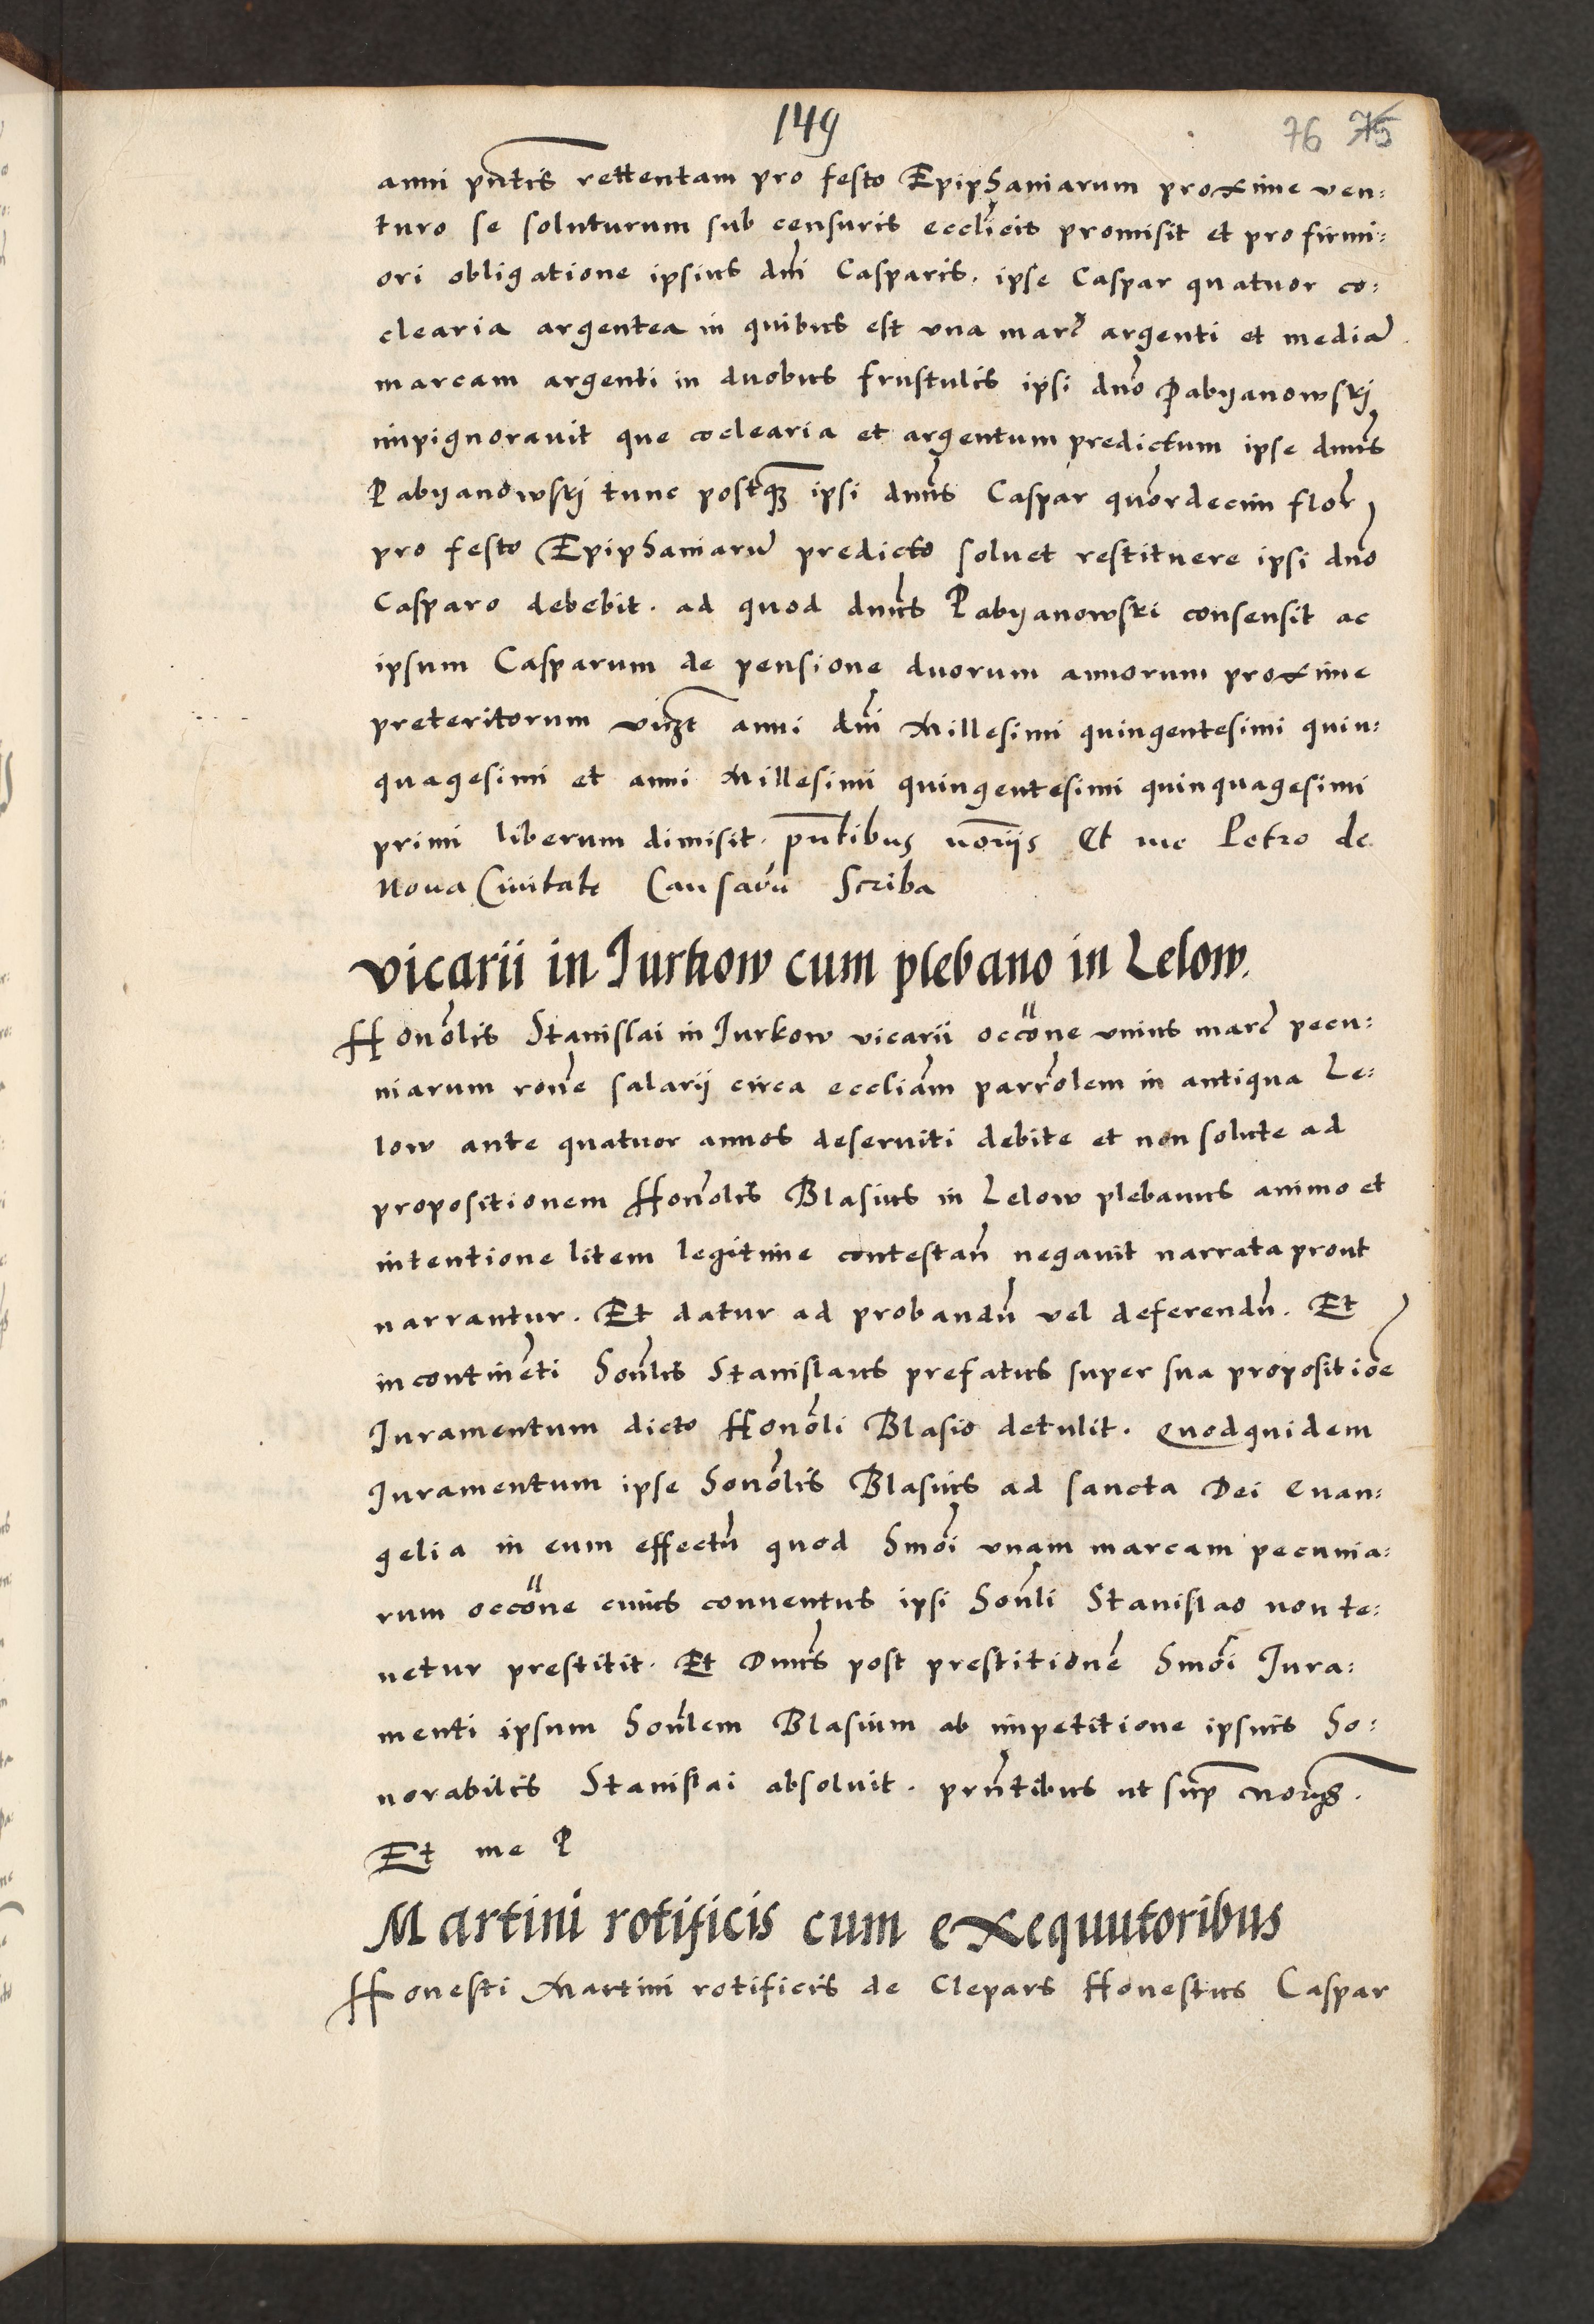 149
76 75
anni pñtis rettentam pro festo Epiphaniarum proxime ven:
turo se soluturum sub censuris ecclicis promisit et pro firmi:
ori obligatione ipsius dni Casparis. ipse Caspar quatuor co:
clearia argentea in quibus est una marc argenti et mediã
marcam argenti in duobus frustulis ipsi dno Pabyanowskj
impignoravit que coclearia et argentum predictum ipse dnus
Pabyanowskj tunc postq3 ipsi dnus Caspar quordecim flor
pro festo Epiphaniarũ predicto soluet restituere ipsi dno
Casparo debebit. ad quod dnus Pabyanowski consensit ac
ipsum Casparum de pensione duorum annorum proxime
preteritorum vi3t anni dni Millesimi quingentesimi quin:
quagesimi et anni Millesimi quingentesimi quinquagesimi
primi liberum dimisit. pñtibus noriis Et me Petro de
Nova Civitate Causarũ Scriba
Vicarii in Jurkow cum plebano in Lelow.
Honolis Stanislai in Jurkow vicarii occone unius marc pecu:
niarum rone salarij circa eccliam parrolem in antiqua Le:
low ante quatuor annos deserviti debite et non solute ad
propositionem Honolis Blasius in Lelow plebanus animo et
intentione litem legitime contestan negavit narrata prout
narrantur. Et datur ad probandũ vel deferendũ. Et
incontinenti honlis Stanislaus prefatus super sua propositioe
Juramentum dicto Honoli Blasio detulit. Quodquidem
Juramentum ipse honolis Blasius ad sancta Dei Evan:
gelia in eum effectũ quod hmoi unam marcam pecunia:
rum occone cuius conventus ipsi honli Stanislao non te:
netur prestitit. Et Dnus post prestitionẽ hmoi Jura:
menti ipsum honlem Blasium ab impetitione ipsius ho:
norabilis Stanislai absolvit. prñtibus ut sup norijs.
Et me P
Martini rotificis cum exequutoribus
Honesti Martini rotificis de Clepars Honestus Caspar